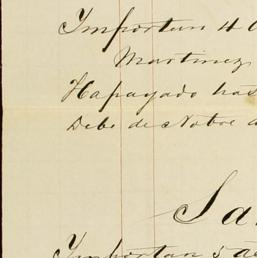 Importan 4
Martinez
Hapagado has
Debe de Nobre
Sa
Importan 5